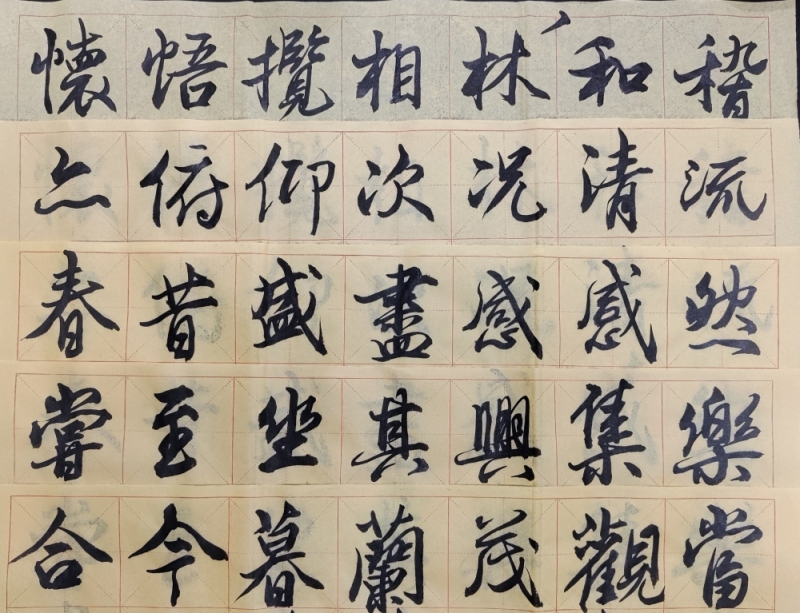 懷悟攬相林和稽
亦俯仰次况清流
春昔盛盡感感然
嘗至坐其興集樂
合今暮蘭茂觀當